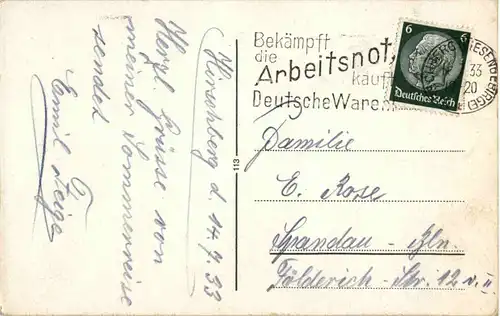 Hirschberg d. 14.7.33
Herzl. Grüsse von
meiner Sommerreise
sendet
Emil Feige
113
Bekämpft
die
Arbeitsnot,
kauft
Deutsche Waren
6 6
Deutsches Reich
(RIESENGEBIRGE)
33
20
Familie
E. Rose
Spandau - Bln.
Földerich-Str. 12 v. II.